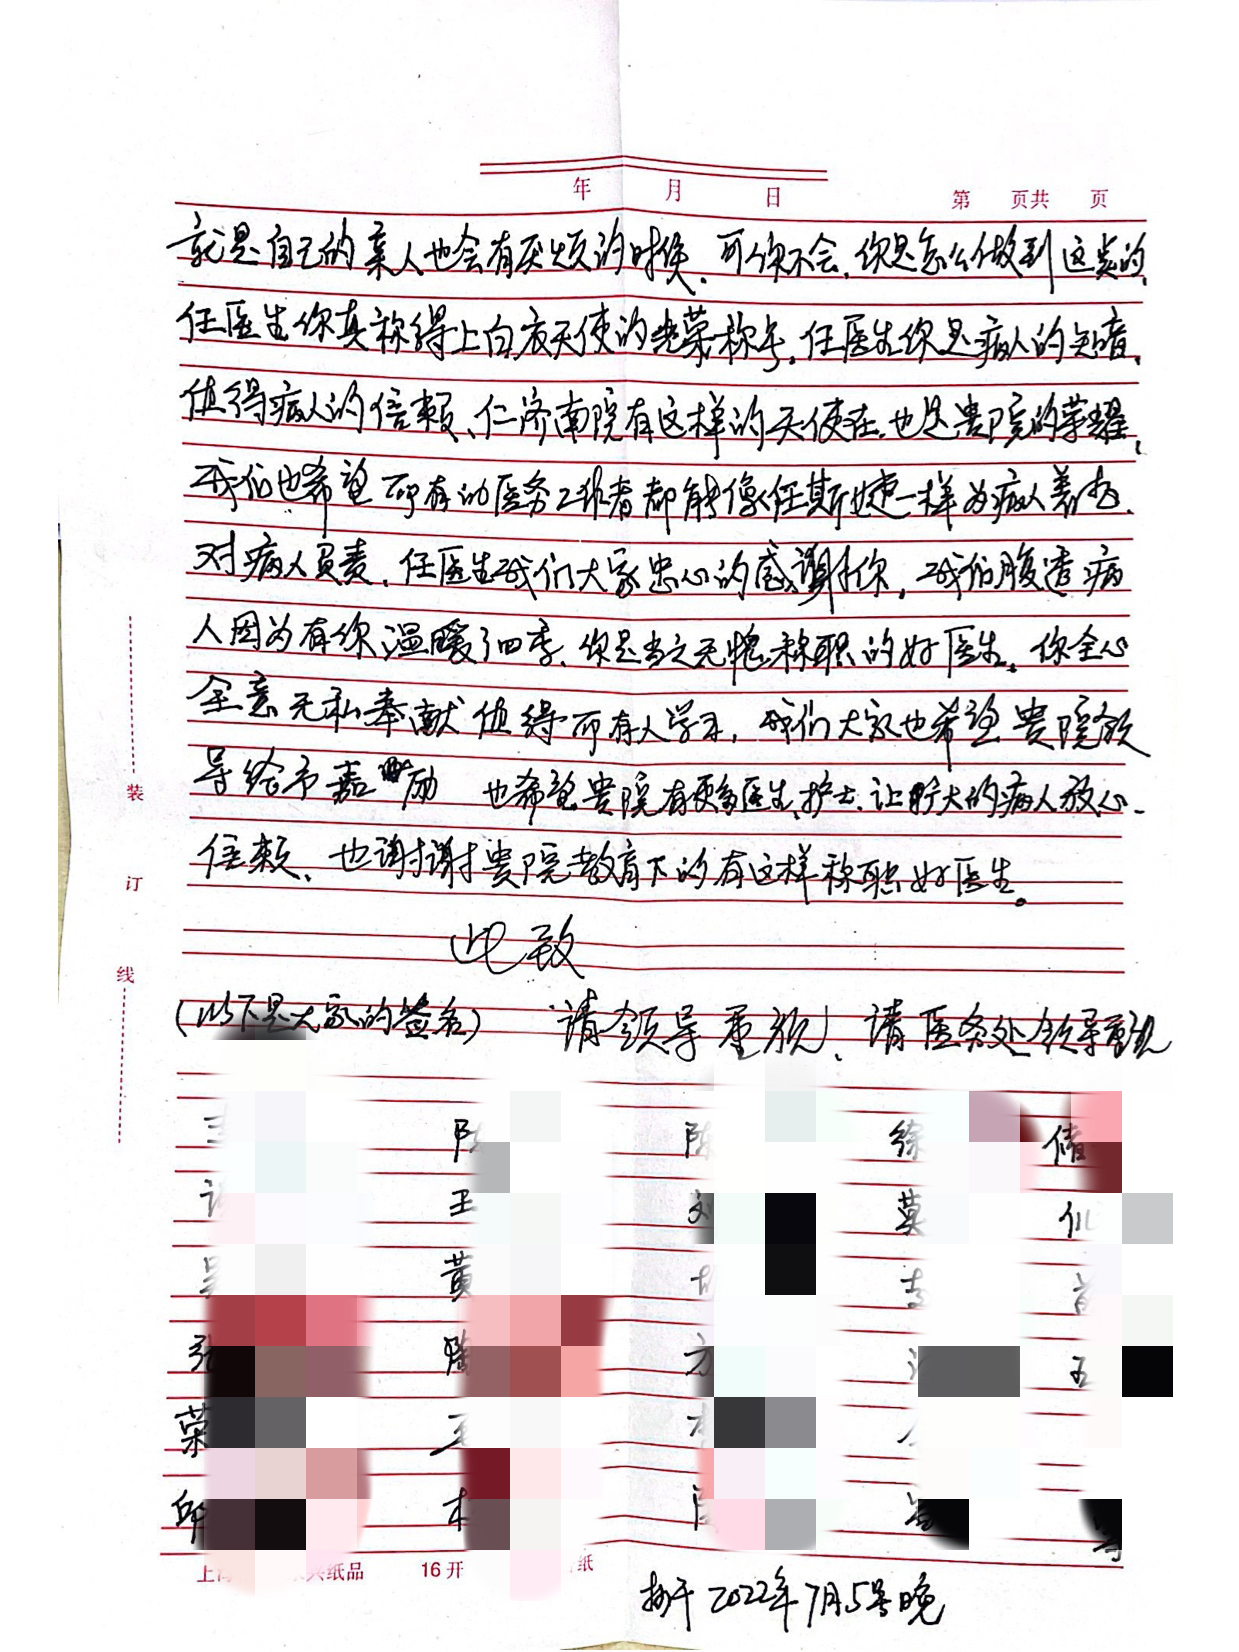 年 月 日
第 页共 页
就是自己的亲人也会有厌烦的时候、可你不会、你是怎么做到这类的、
任医生你真称得上白衣天使的光荣称号、任医生你是病人的知音、
值得病人的信赖、仁济南院有这样的天使在、也是贵院的荣耀、
我们也希望所有的医务工作者都能像任斯婕一样为病人着想、
对病人负责、任医生我们大家忠心的感谢你，我们腹透病
人因为有你温暖了四季、你是当之无愧称职的好医生。你全心
全意无私奉献值得所有人学习，我们大家也希望贵院领
导给予嘉 励 也希望贵院有更多医生、护士、让旷大的病人放心、
信赖、也谢谢贵院教育下的有这样称职好医生。
此致
(以下是大家的签名) 请领导重视!、请医务处领导重视
陈 徐 储
王 刘 莫 仇
黄
张 陶 方
荣 王
邱
16开 纸
于2022年7月5号晚
装
订
线